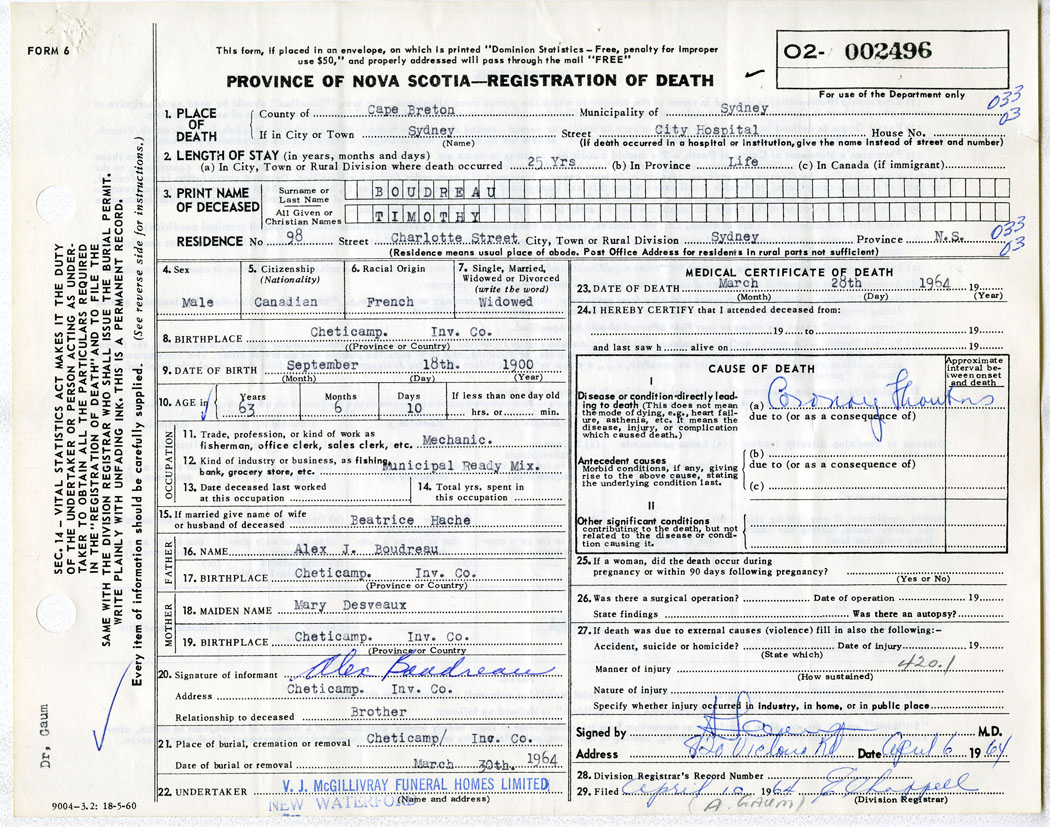 FORM 6
This form, if placed in an envelope, on which is printed "Dominion Statistics – Free, penalty for improper
use $50," and properly addressed will pass through the mail "FREE"
PROVINCE OF NOVA SCOTIA—REGISTRATION OF DEATH
02- 002496
For use of the Department only
033
03
1. PLACE OF DEATH
County of Cape Breton Municipality of Sydney
If in City or Town Sydney Street City Hospital House No.
(Name) (If death occurred in a hospital or institution, give the name instead of street and number)
2. LENGTH OF STAY (in years, months and days)
(a) In City, Town or Rural Division where death occurred 25 Yrs (b) In Province Life (c) In Canada (if immigrant)
3. PRINT NAME OF DECEASED
Surname or Last Name BOUDREAU
All Given or Christian Names TIMOTHY
RESIDENCE No 98 Street Charlotte Street City, Town or Rural Division Sydney Province N.S.
033
03
(Residence means usual place of abode. Post Office Address for residents in rural parts not sufficient)
4. Sex
Male
5. Citizenship
(Nationality)
Canadian
6. Racial Origin
French
7. Single, Married,
Widowed or Divorced
(write the word)
Widowed
8. BIRTHPLACE Cheticamp. Inv. Co.
((Province or Country)
9. DATE OF BIRTH September 18th. 1900
(Month) (Day) (Year)
10. AGE in
Years Months Days If less than one day old
63 6 10 hrs. or min.
OCCUPATION
11. Trade, profession, or kind of work as
fisherman, office clerk, sales clerk, etc. Mechanic.
12. Kind of industry or business, as fishing,
bank, grocery store, etc. Municipal Ready Mix.
13. Date deceased last worked
at this occupation
14. Total yrs. spent in
this occupation
15. If married give name of wife
or husband of deceased Beatrice Hache
FATHER
16. NAME Alex J. Boudreau
17. BIRTHPLACE Cheticamp. Inv. Co.
(Province or Country)
MOTHER
18. MAIDEN NAME Mary Desveaux
19. BIRTHPLACE Cheticamp. Inv. Co.
(Province or Country
20. Signature of informant Alex Boudreau
Address Cheticamp. Inv. Co.
Relationship to deceased Brother
21. Place of burial, cremation or removal Cheticamp/ Inv. Co.
Date of burial or removal March 30th. 1964
22. UNDERTAKER V. J. McGILLIVRAY FUNERAL HOMES LIMITED
NEW WATERFORD
(Name and address)
MEDICAL CERTIFICATE OF DEATH
23. DATE OF DEATH March 28th 1964 19
(Month) (Day) (Year)
24. I HEREBY CERTIFY that I attended deceased from:
19 to 19
and last saw h alive on 19
CAUSE OF DEATH
Approximate
interval be-
tween onset
and death
I
Disease or condition directly lead-
ing to death (This does not mean
the mode of dying, e.g., heart fail-
ure, asthenia, etc. It means the
disease, injury, or complication
which caused death.)
(a) Coronary
due to (or as a consequence of)
Antecedent causes
Morbid conditions, if any, giving
rise to the above cause, stating
the underlying condition last.
(b)
due to (or as a consequence of)
(c)
II
Other significant conditions
contributing to the death, but not
related to the disease or condi-
tion causing it.
25. If a woman, did the death occur during
pregnancy or within 90 days following pregnancy?
(Yes or No)
26. Was there a surgical operation? Date of operation 19
State findings Was there an autopsy?
27. If death was due to external causes (violence) fill in also the following:–
Accident, suicide or homicide? Date of injury 19
(State which)
Manner of injury 420.1
(How sustained)
Nature of injury
Specify whether injury occurred in industry, in home, or in public place
Signed by M.D.
Address Victoria Rd Date April 6 1964
28. Division Registrar's Record Number
29. Filed April 10 1964
(A. GAUM) (Division Registrar)
SEC. 14 – VITAL STATISTICS ACT MAKES IT THE DUTY
OF THE UNDERTAKER OR PERSON ACTING AS UNDER-
TAKER TO OBTAIN ALL THE PARTICULARS REQUIRED
IN THE "REGISTRATION OF DEATH" AND TO FILE THE
SAME WITH THE DIVISION REGISTRAR WHO SHALL ISSUE THE BURIAL PERMIT.
WRITE PLAINLY WITH UNFADING INK. THIS IS A PERMANENT RECORD.
Every item of information should be carefully supplied. (See reverse side for instructions.)
Dr, Gaum
9004-3.2: 18-5-60